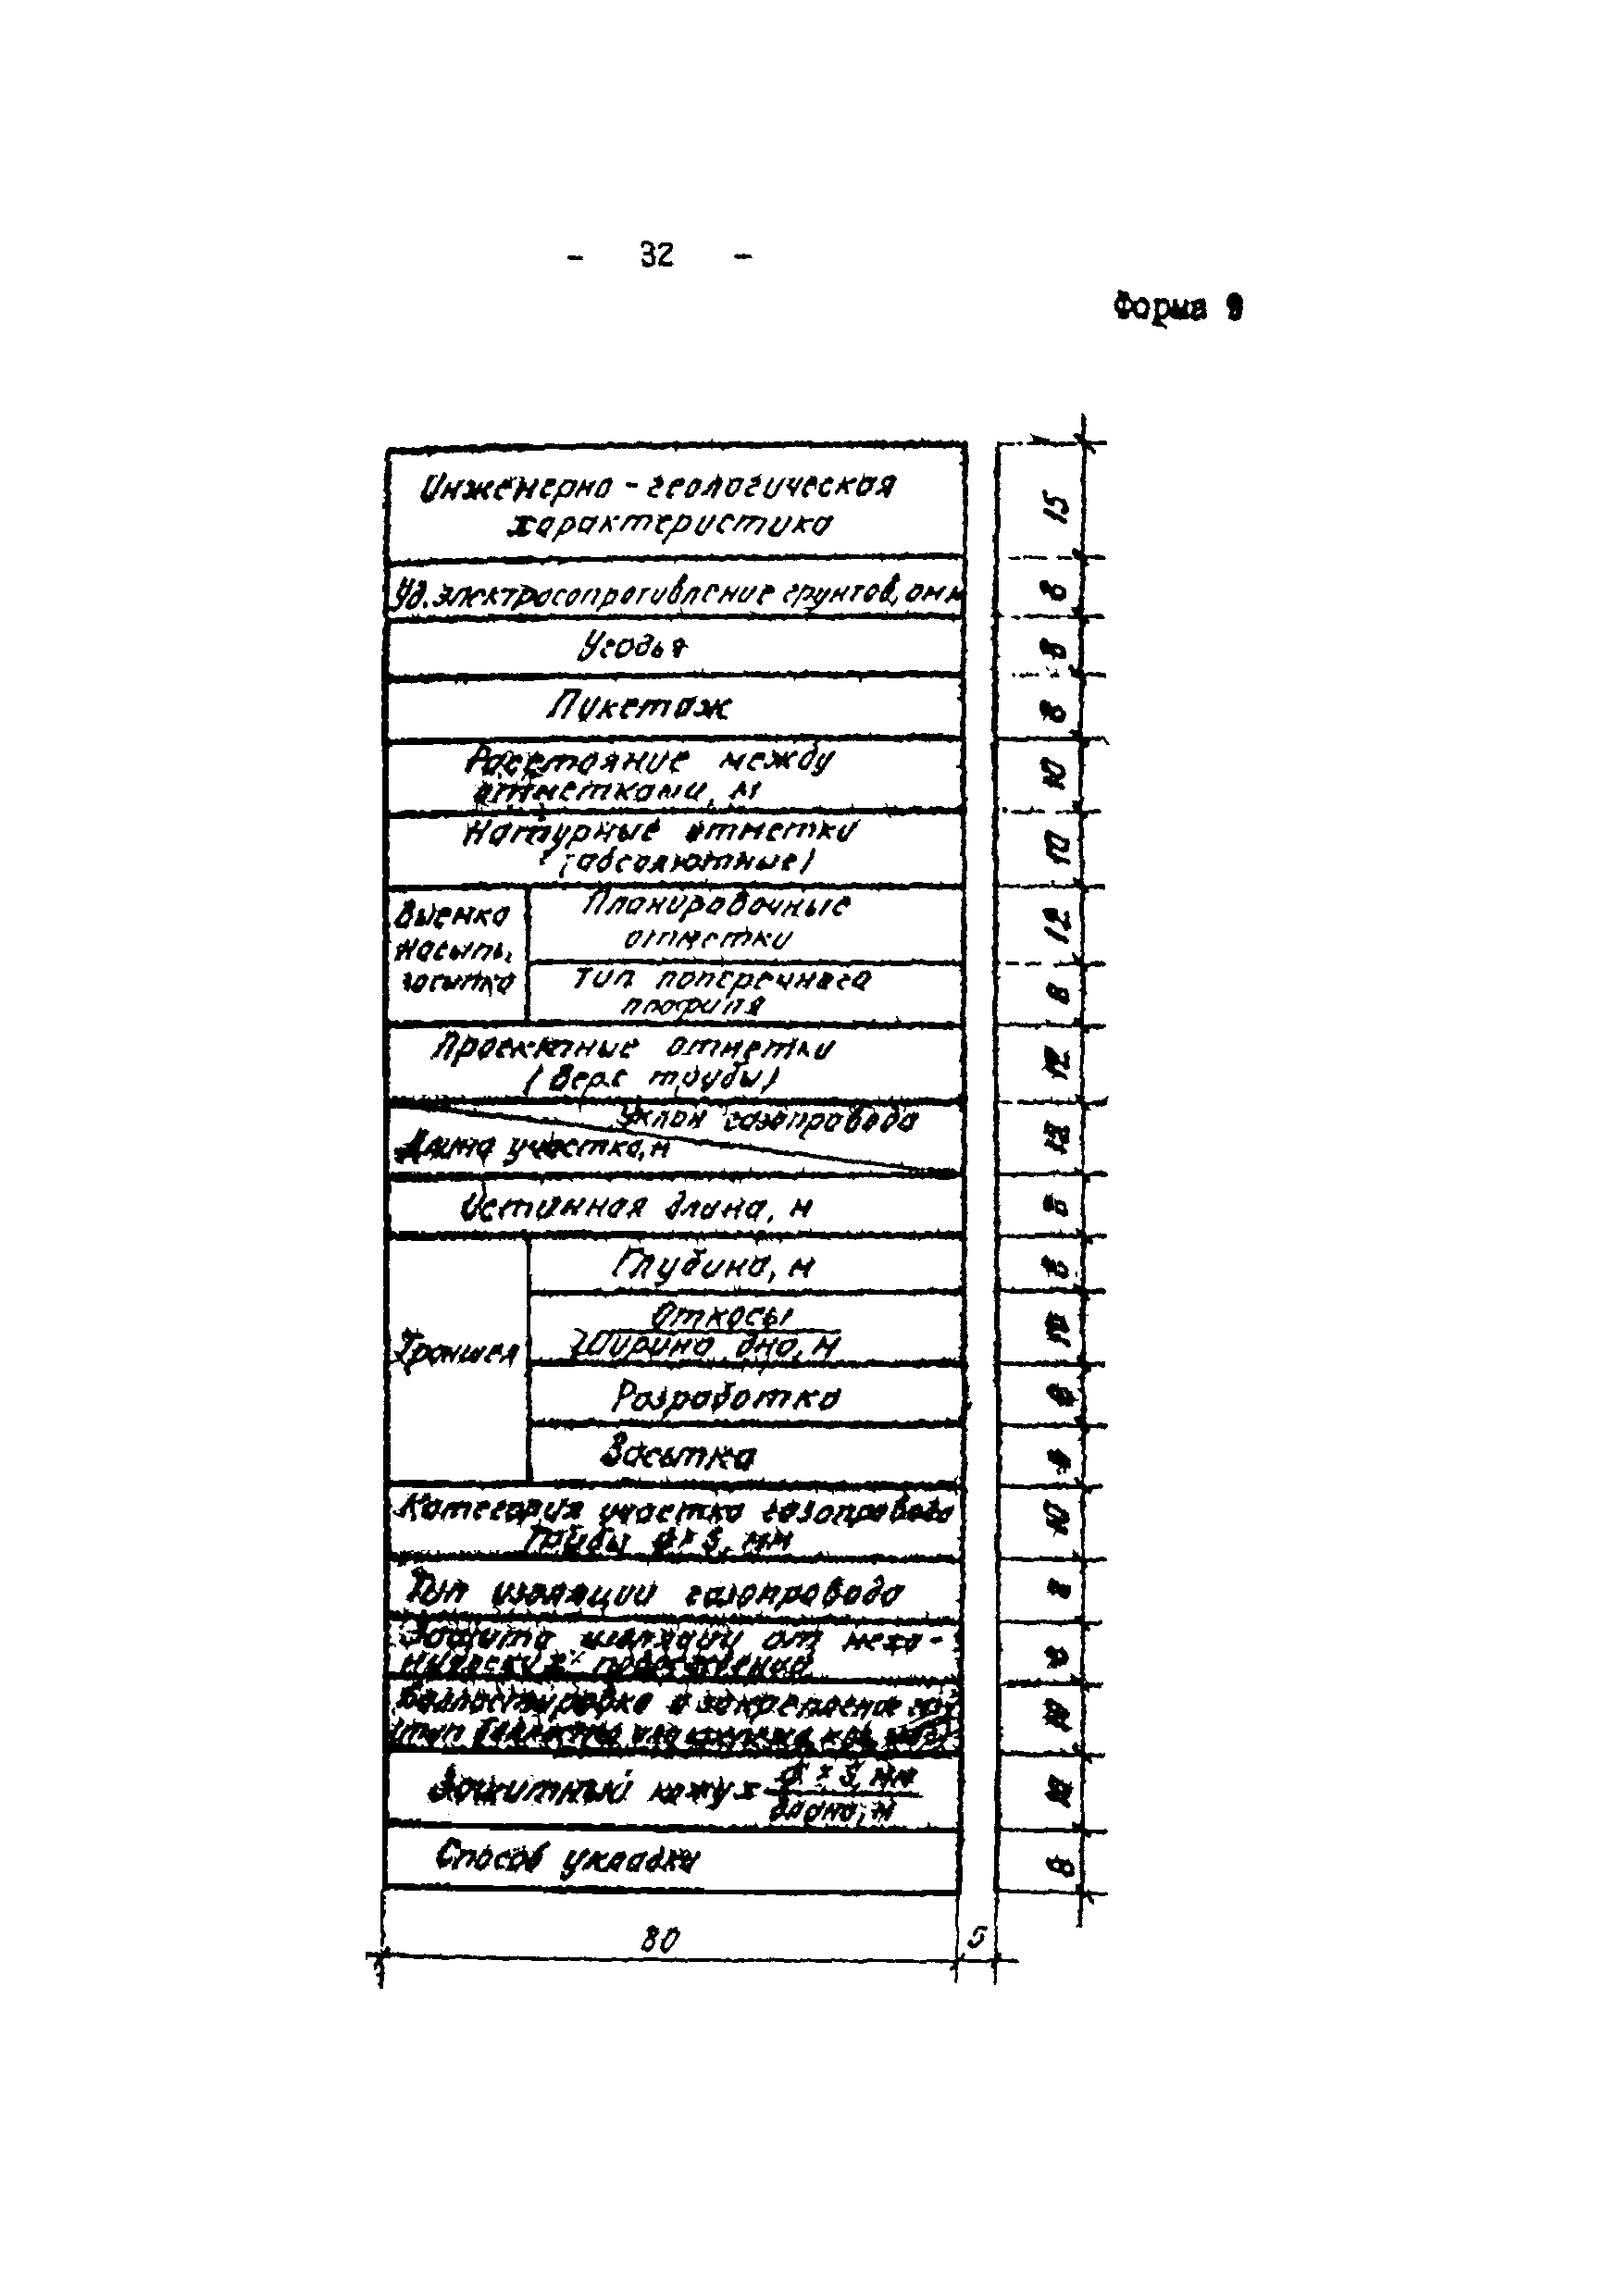 - 32 -
Форма 9
Инженерно-геологическая
характеристика
15
Уд. электросопротивление грунтов, ом м
8
Угодья
8
Пикетаж
8
Расстояние между
отметками, м
10
Натурные отметки
(абсолютные)
10
Выемка
насыпь,
засыпка
Планировочные
отметки
12
Тип поперечного
профиля
8
Проектные отметки
(верх трубы)
12
Уклон газопровода
Длина участка, м
Истинная длина, м
8
Траншея
Глубина, м
8
Откосы
Ширина дна, м
Разработка
Засыпка
Категория участка газопровода
Трубы ø×S, мм
10
Тип изоляции газопровода
Защита изоляции от меха-
нических повреждений
Балластировка и закрепление
Защитный кожух ø×S, мм
длина, м
Способ укладки
8
80
5